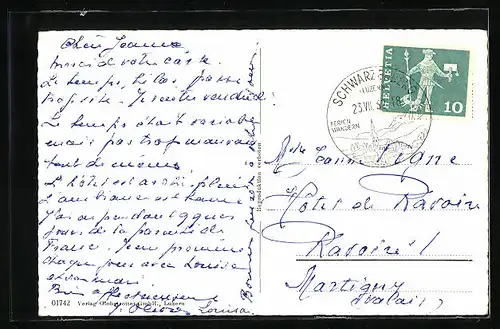 Chère Jeanne,
merci de votre carte.
Le temps, hélas passe
trop vite. Je rentre vendredi.
Le temps était variable
mais pas trop mauvais
tout de même
L'hôtel est assez plein
L'ambiance est bonne
J'ai eu pendant q.ques
jours de la parenté de
France. Je me promène
chaque jour avec Louise
et son mari
Bien affectueusement
Louisa
01742 Verlag Globetrotter GmbH., Luzern
SCHWARZENBERG
(LUZERN)
23.VII.
FERIEN
WANDERN
HELVETIA
10
Mlle Jeanne Vigne
Hôtel de Ravoire
Ravoire /
Martigny
(Valais)